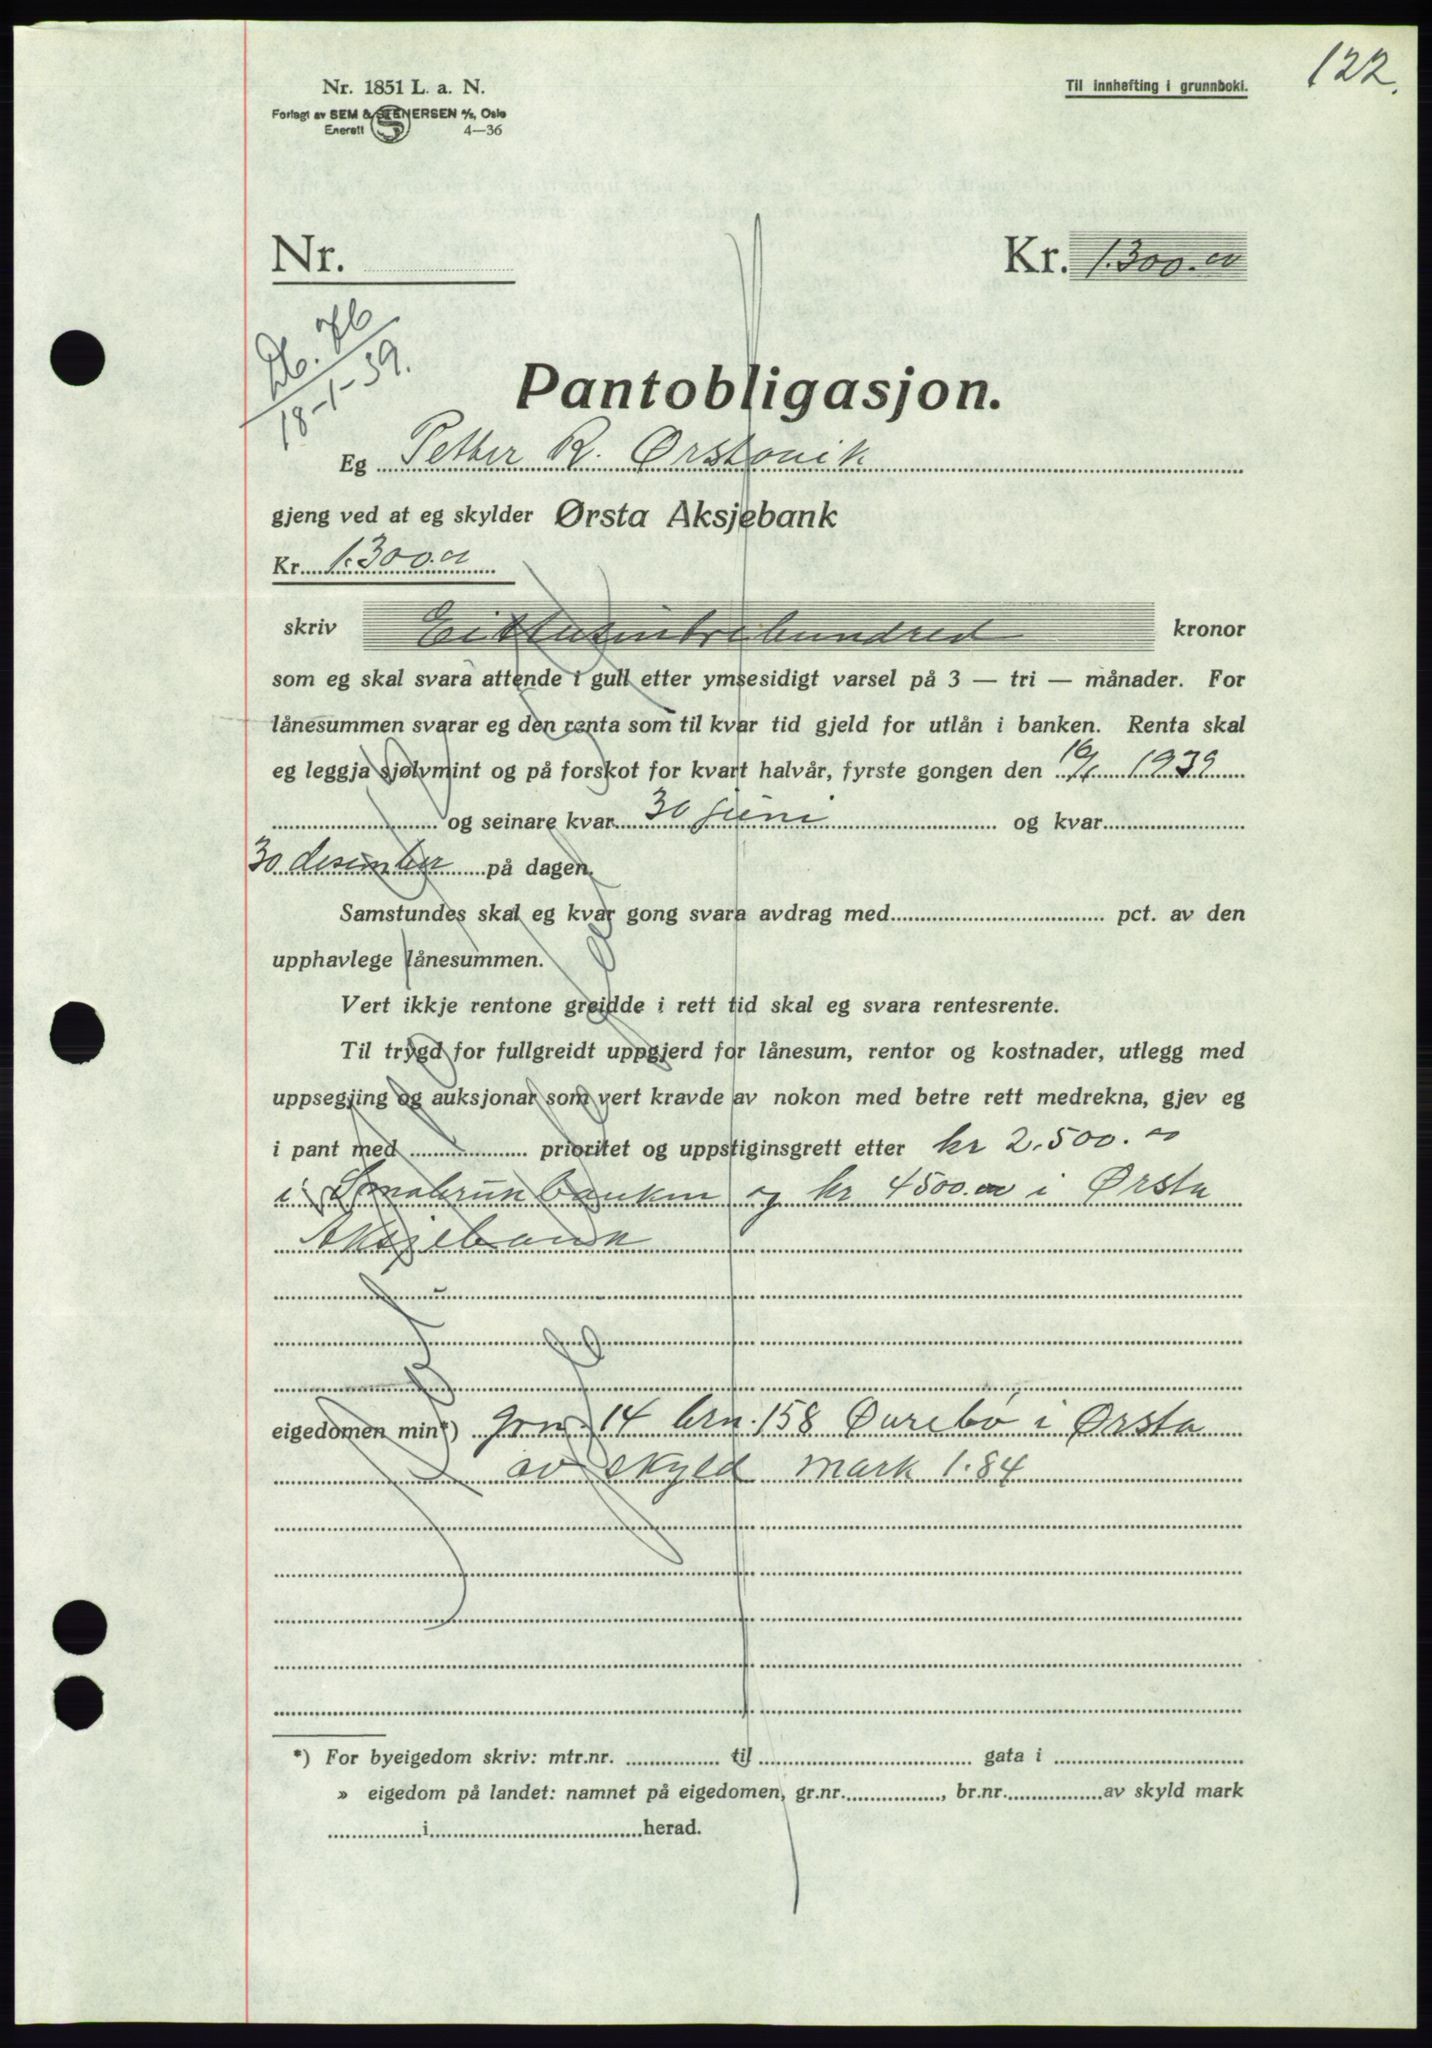 122.
Nr. 1851 L. a. N.
Til innhefting i grunnboki.
Forlagt av SEM & STENERSEN A/S, Oslo
Enerett 4—36
Nr.
Kr. 1.300.00
Db. 76
18-1-39.
Pantobligasjon.
Eg Petter R. Ørstavik
gjeng ved at eg skylder Ørsta Aksjebank
Kr. 1.300.00
skriv Eittusintrehundred kronor
som eg skal svara attende i gull etter ymsesidigt varsel på 3 — tri — månader. For
lånesummen svarar eg den renta som til kvar tid gjeld for utlån i banken. Renta skal
eg leggja sjølvmint og på forskot for kvart halvår, fyrste gongen den 16/1 1939
og seinare kvar 30 juni og kvar
30 desember på dagen.
Samstundes skal eg kvar gong svara avdrag med pct. av den
upphavlege lånesummen.
Vert ikkje rentone greidde i rett tid skal eg svara rentesrente.
Til trygd for fullgreidt uppgjerd for lånesum, rentor og kostnader, utlegg med
uppsegjing og auksjonar som vert kravde av nokon med betre rett medrekna, gjev eg
i pant med prioritet og uppstiginsgrett etter kr 2.500.00
i Småbrukbanken og kr 4500.00 i Ørsta
Aksjebank
eigedomen min*) grn. 14 brn. 158 Øurebø i Ørsta
av skyld mark 1.84
*) For byeigedom skriv: mtr.nr. til gata i
» eigedom på landet: namnet på eigedomen, gr.nr. , br.nr. av skyld mark
i herad.